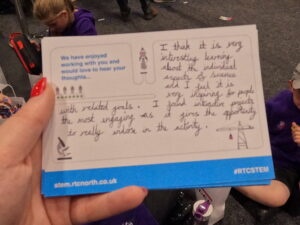 We have enjoyed
working with you and
would love to hear your
thoughts...
I think it is very
interesting learning
about the individual
aspects of science
and I feel it is
very inspiring for people
with related goals. I found interactive projects
the most engaging as it gives the opportunity
to really in the activity.
stem.rtcnorth.co.uk
#RTCSTEM